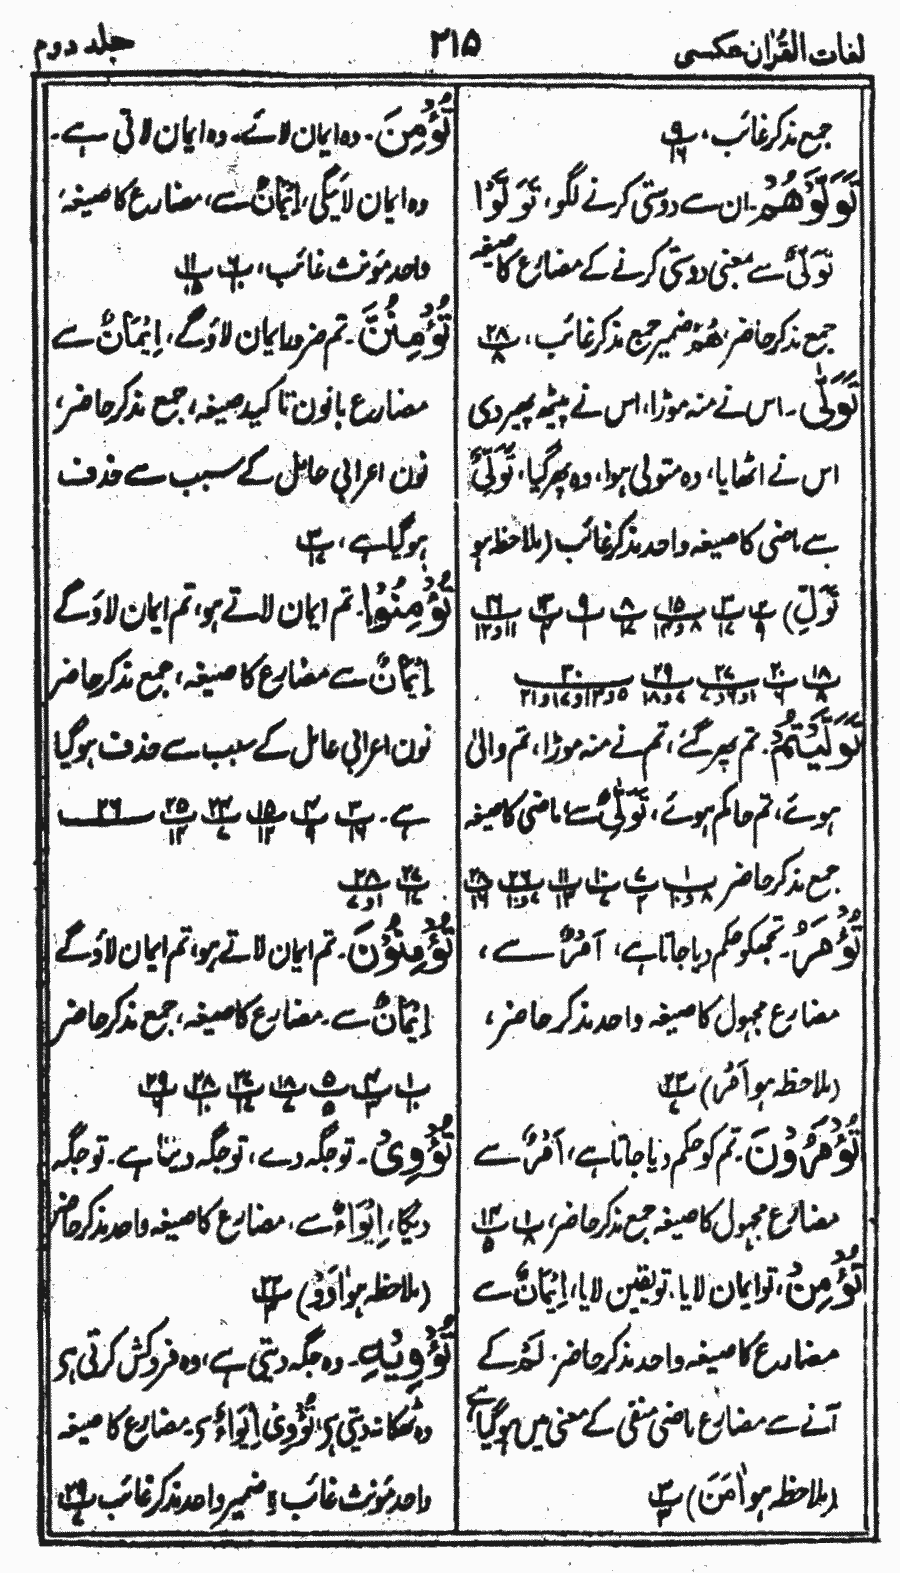 لغات القرآن عکسی
۲۱۵
جلد دوم
جمع مذکر غائب، پ ۹ ۱۶
تَوَلَّوْهُمْ۔ ان سے دوستی کرنے لگو، تَوَلَّوْا
تَوَلِّیٌ سے معنی دوستی کرنے کے مضارع کا صیغہ
جمع مذکر حاضر، هُمْ ضمیر جمع مذکر غائب، پ ۲۸ ۸
تَوَلّٰی۔ اس نے منہ موڑا، اس نے پیٹھ پھیر دی
اس نے اٹھایا، وہ متولی ہوا، وہ پھر گیا، تَوَلِّیٌ
سے ماضی کا صیغہ واحد مذکر غائب (ملاحظہ ہو
تَوَلِّ)
۱۸ ۸ ۲۰ ۶ ۲۷ ۱و۶و۷ ۲۹ ۷و۱۸ ۳۰ ۵و۱۳و۱۷و۲۱
تَوَلَّیْتُمْ۔ تم پھر گئے، تم نے منہ موڑا، تم والی
ہوئے، تم حاکم ہوئے، تَوَلِّیٌ سے ماضی کا صیغہ
جمع مذکر حاضر
تُؤْمَرُ۔ تجھ کو حکم دیا جاتا ہے، اَمْرٌ سے،
مضارع مجہول کا صیغہ واحد مذکر حاضر،
(ملاحظہ ہو اُمُرْ) پ
تُؤْمَرُوْنَ۔ تم کو حکم دیا جاتا ہے، اَمْرٌ سے
مضارع مجہول کا صیغہ جمع مذکر حاضر، پ ۱ ۸ پ ۱۴ ۵
تُؤْمِنْ، تو ایمان لایا۔ تو یقین لایا، اِیْمَانٌ سے
مضارع کا صیغہ واحد مذکر حاضر۔ لَمْ کے
آنے سے مضارع ماضی منفی کے معنی میں ہوگیا ہے
(ملاحظہ ہو اٰمَنَ) پ ۳ ۳
تُؤْمِنَ۔ وہ ایمان لائے۔ وہ ایمان لاتی ہے۔
وہ ایمان لائیگی، اِیْمَانٌ سے، مضارع کا صیغہ
واحد مؤنث غائب، پ
تُؤْمِنُنَّ۔ تم ضرور ایمان لاؤ گے، اِیْمَانٌ سے
مضارع بانون تاکید صیغہ، جمع مذکر حاضر،
نون اعرابی عامل کے سبب سے حذف
ہوگیا ہے، پ ۳ ۱۷
تُؤْمِنُوْا۔ تم ایمان لاتے ہو، تم ایمان لاؤ گے
اِیْمَانٌ سے مضارع کا صیغہ، جمع مذکر حاضر
نون اعرابی عامل کے سبب سے حذف ہوگیا
ہے۔
تُؤْمِنُوْنَ۔ تم ایمان لاتے ہو، تم ایمان لاؤ گے
اِیْمَانٌ سے۔ مضارع کا صیغہ، جمع مذکر حاضر
تُؤْوِیْ۔ تو جگہ دے، تو جگہ دیتا ہے۔ تو جگہ
دیگا، اِیْوَاءٌ سے، مضارع کا صیغہ واحد مذکر حاضر
(ملاحظہ ہو اٰوٰی) پ
تُؤْوِیْهِ۔ وہ جگہ دیتی ہے، وہ فروکش کرتی ہی
وہ ٹھکانہ دیتی ہی، تُؤْوِیْ اِیْوَاءٌ سے، مضارع کا صیغہ
واحد مؤنث غائب، ہ ضمیر واحد مذکر غائب پ ۲۹ ۷